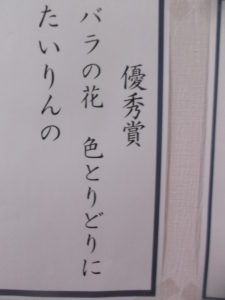 優秀賞
バラの花　色とりどりに
たいりんの